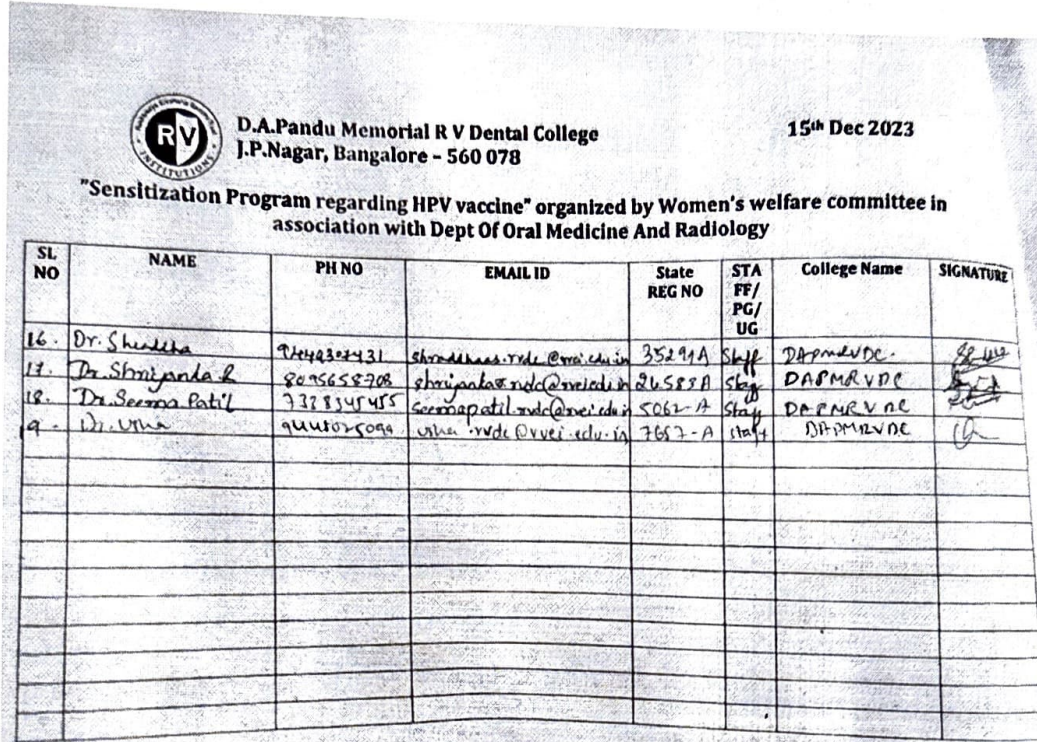 RV
INSTITUTIONS
D.A.Pandu Memorial R V Dental College
15th Dec 2023
J.P.Nagar, Bangalore - 560 078
"Sensitization Program regarding HPV vaccine" organized by Women's welfare committee in
association with Dept Of Oral Medicine And Radiology
SL NO NAME PH NO EMAIL ID State REG NO STA FF/ PG/ UG College Name SIGNATURE
16. Dr. 35291A Staff DAPMRVDC.
17. Dr. Shrijanta R 8095658708 26588A Staff DAPMRVDC
18. Dr. Seema Patil 7338345455 seemapatil.rvdc@rvei.edu.in 5062-A Staff DAPMRVDC
9. Dr. Usha usha.rvdc@rvei.edu.in 7657-A staff DAPMRVDC